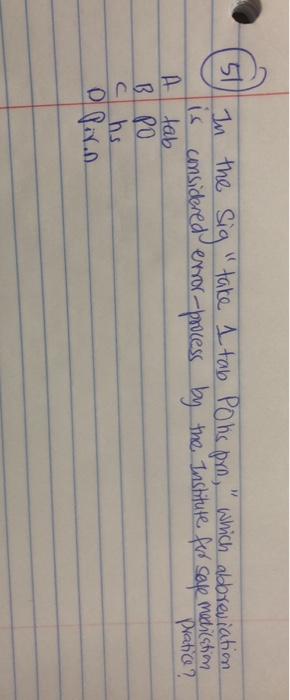 51 In the Sig "take 1 tab PO hs prn," which abbreviation
is considered error-process by the Institute for safe medication
pratice?
A tab
B PO
C hs
D P.r.n